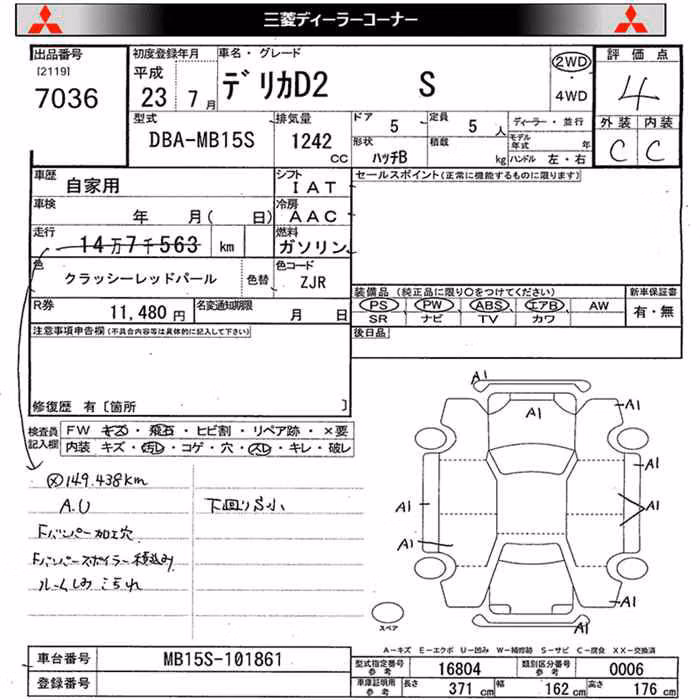 三菱ディーラーコーナー
出品番号
[2119]
7036
初度登録年月
平成
23 7月
車名・グレード
デリカD2 S
2WD
・
4WD
評価点
4
外装 内装
C C
型式
DBA-MB15S
排気量
1242
CC
ドア
5
定員
5人
形状
ハッチB
積載
kg
ディーラー・並行
モデル年式 年
ハンドル 左・右
車歴
自家用
シフト
IAT
セールスポイント(正常に機能するものに限ります)
車検
年 月( 日)
冷房
AAC
走行
14万7千563 km
燃料
ガソリン
色
クラッシーレッドパール
色替
色コード
ZJR
R券
11,480円
名変通知期限
月 日
装備品(純正品に限り〇をつけてください)
PS PW ABS エアB AW
SR ナビ TV カワ
新車保証書
有・無
注意事項申告欄(不具合内容等は具体的に記入して下さい)
後日品
修復歴 有[箇所 ]
検査員記入欄
FW キズ・飛石・ヒビ割・リペア跡・×要
内装 キズ・汚レ・コゲ・穴・スレ・キレ・破レ
149.438km
A.U
Fバンパー加工穴
Fバンパースポイラー積込み
ルームしみ こちれ
下回りS小
A1
A1
A1
A1
A1
A1
A1
A1
A1
スペア
A-キズ E-エクボ U-凹み W-補修跡 S-サビ C-腐食 XX-交換済
車台番号
MB15S-101861
登録番号
型式指定番号参考
16804
類別区分番号参考
0006
車庫証明用参考
長さ 371cm
幅 162cm
高さ 176cm